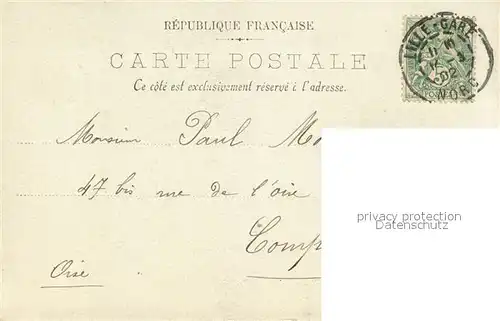 RÉPUBLIQUE FRANÇAISE
CARTE POSTALE
Ce côté est exclusivement réservé à l'adresse.
LILLE-GARE
02
NOR
Monsieur Paul Mo
47 bis rue de l'oise
Comp
Oise
privacy protection
Datenschutz